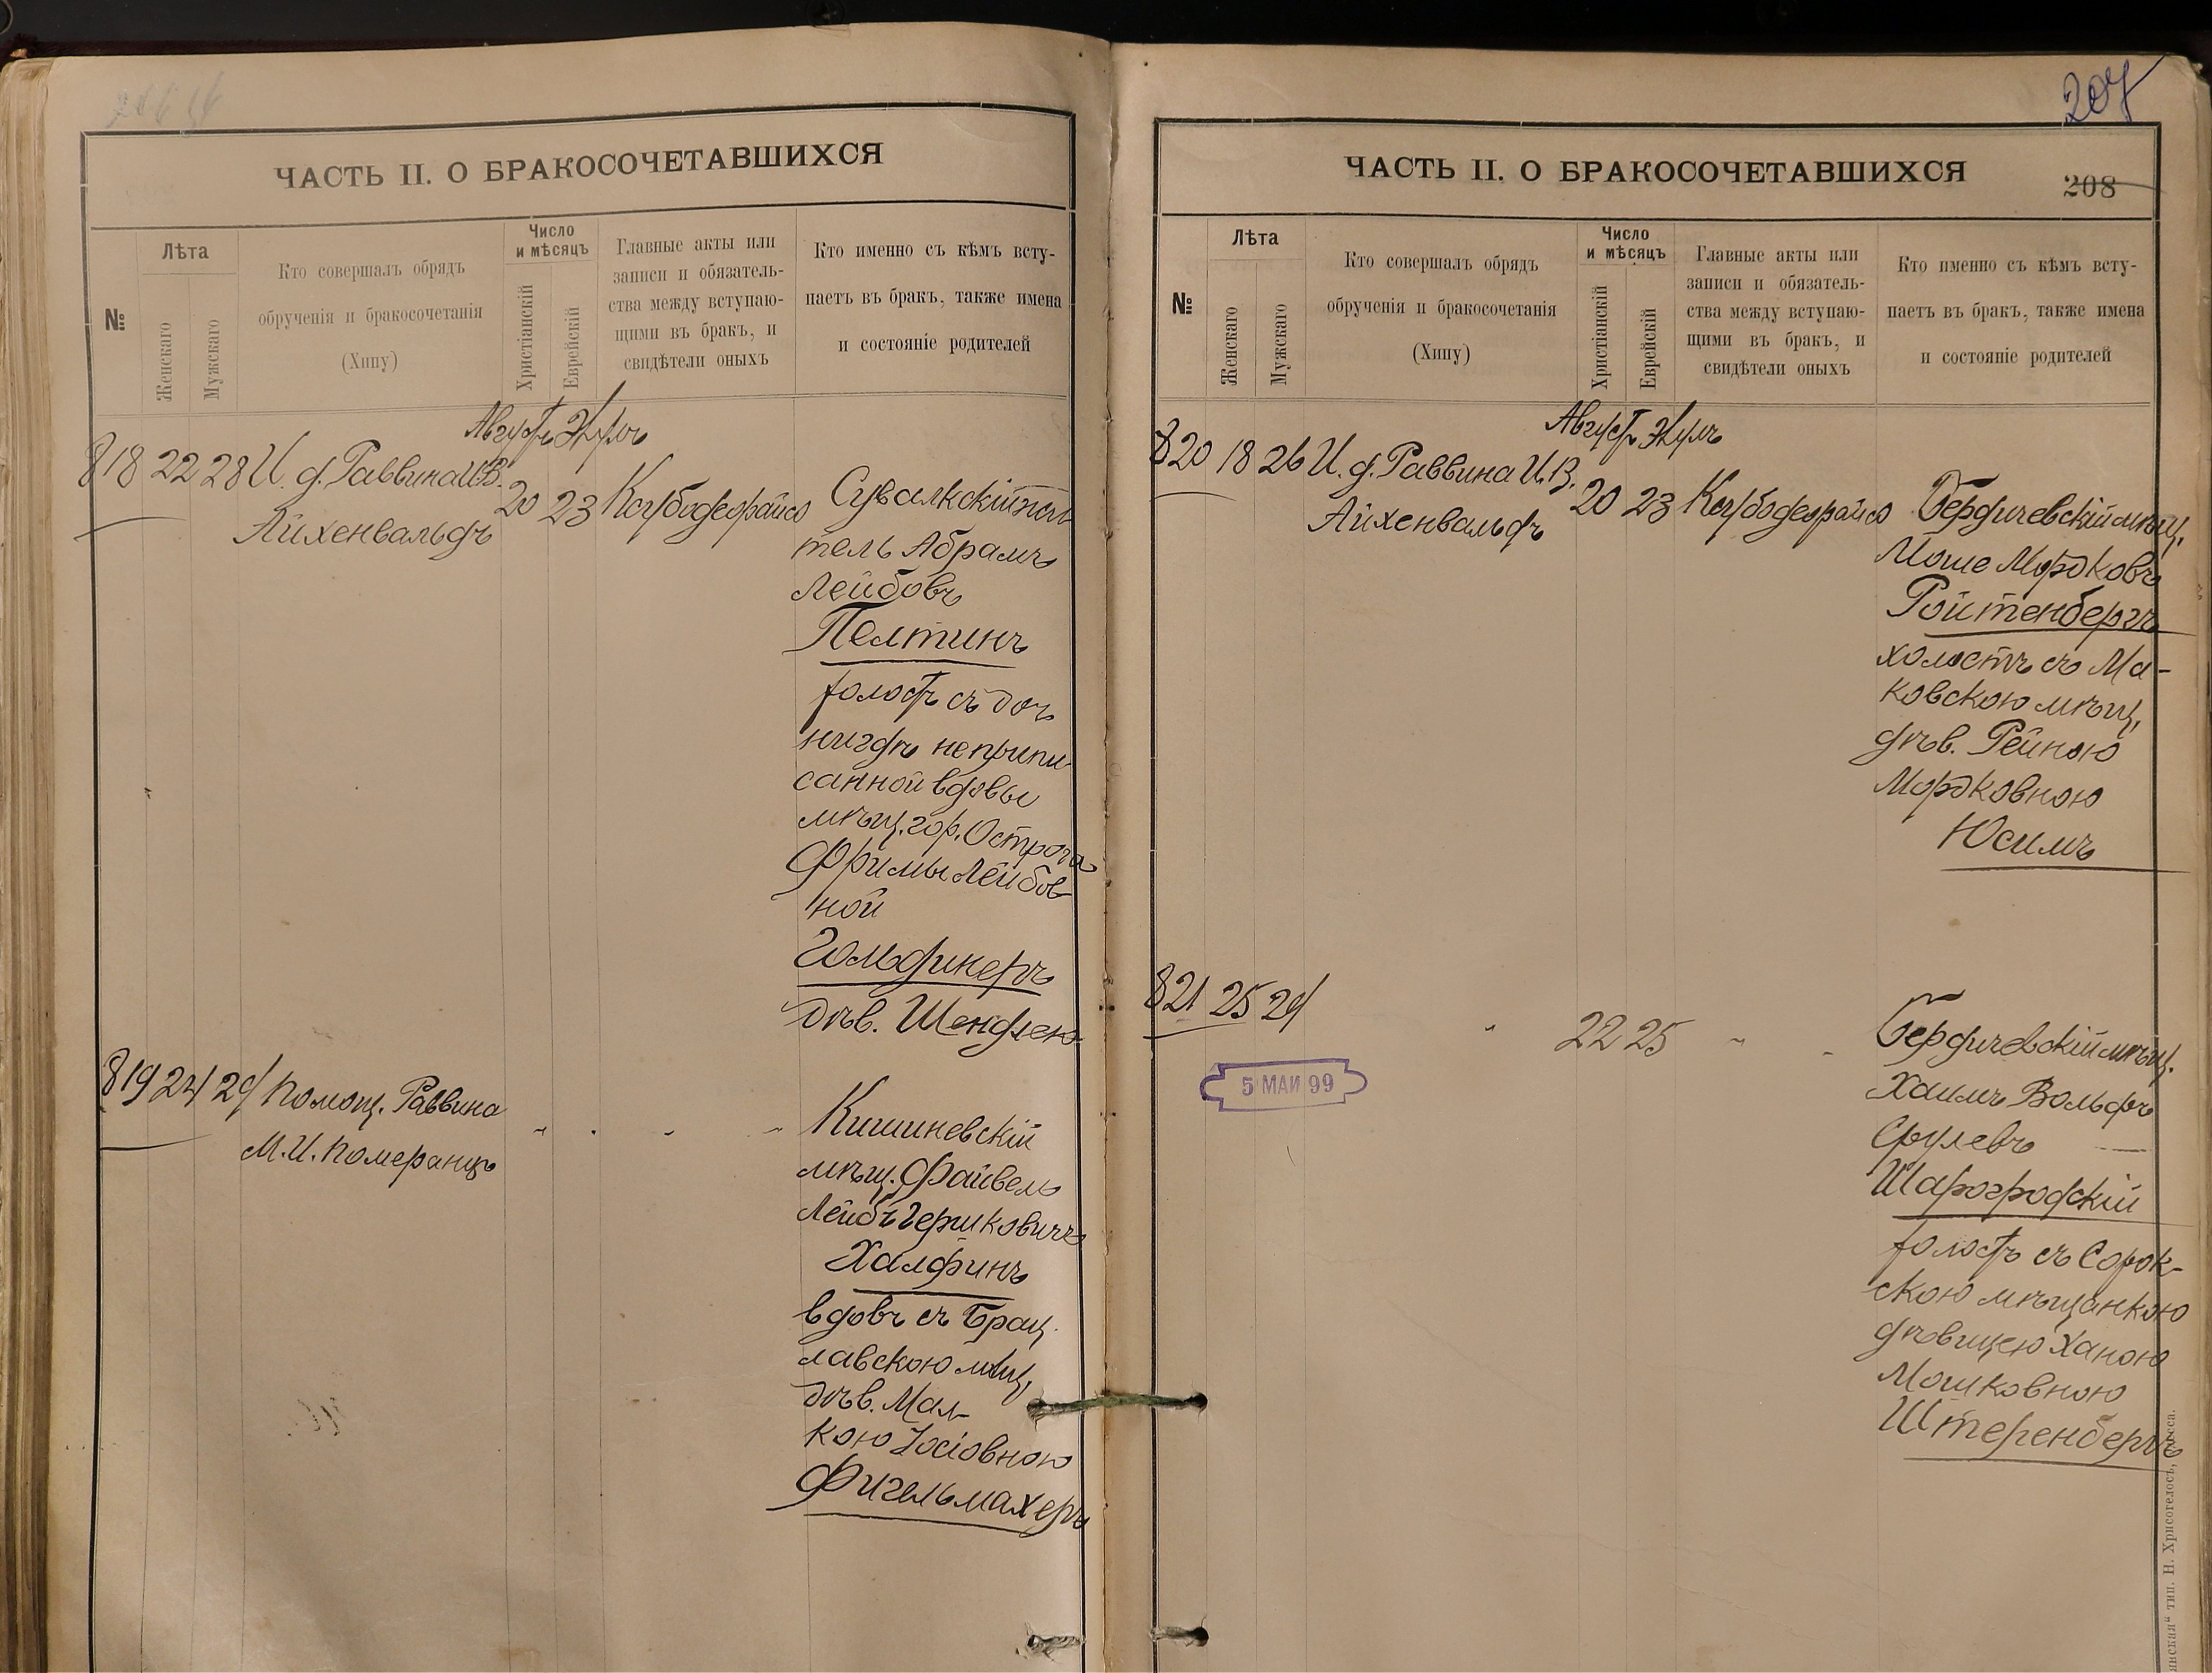 ЧАСТЬ II. О БРАКОСОЧЕТАВШИХСЯ
№
Лѣта
Женскаго
Мужскаго
Кто совершалъ обрядъ
обрученія и бракосочетанія
(Хипу)
Число
и мѣсяцъ
Христіанскій
Еврейскій
Главные акты или
записи и обязатель-
ства между вступаю-
щими въ бракъ, и
свидѣтели оныхъ
Кто именно съ кѣмъ всту-
паетъ въ бракъ, также имена
и состояніе родителей
Августъ Элулъ
818 22 28 И. д. Раввина И.В.
Айхенвальдъ
20 23 Ксубодеорайсо
Сувалкскій жи
тель Абрамъ
Лейбовъ
Пелтинъ
холостъ съ доч
нигдѣ неприпи
санной вдовы
мѣщ. гор. Острога
Фримы Лейбов
ной
Гольдинеръ
дѣв. Шендлею
819 24 29 Помощ. Раввина
М.И. Померанцъ
Кишиневскій
мѣщ. Файвель
Лейбъ Гершковичъ
Халфинъ
вдовъ съ Брац
лавскою мѣщ,
дѣв. Мал-
кою Іосіовною
Фигельмахеръ
207
ЧАСТЬ II. О БРАКОСОЧЕТАВШИХСЯ
208
№
Лѣта
Женскаго
Мужскаго
Кто совершалъ обрядъ
обрученія и бракосочетанія
(Хипу)
Число
и мѣсяцъ
Христіанскій
Еврейскій
Главные акты или
записи и обязатель-
ства между вступаю-
щими въ бракъ, и
свидѣтели оныхъ
Кто именно съ кѣмъ всту-
паетъ въ бракъ, также имена
и состояніе родителей
Августъ Элулъ
820 18 26 И. д. Раввина И.В.
Айхенвальдъ
20 23 Ксубодеорайсо
Бердичевскій мѣщ.
Моше Мордковъ
Ройтенбергъ
холостъ съ Ма-
ковскою мѣщ,
дѣв. Рейною
Мордковною
Юсимъ
821 25 29
22 25
5 МАИ 99
Бердичевскій мѣщ.
Хаимъ Вольфъ
Срулевъ
Шарогродскій
холостъ съ Сорок-
скою мѣщанкою
дѣвицею Ханою
Мошковною
Штеренбергъ
тип. Н. Хрисогелосъ, Одесса.